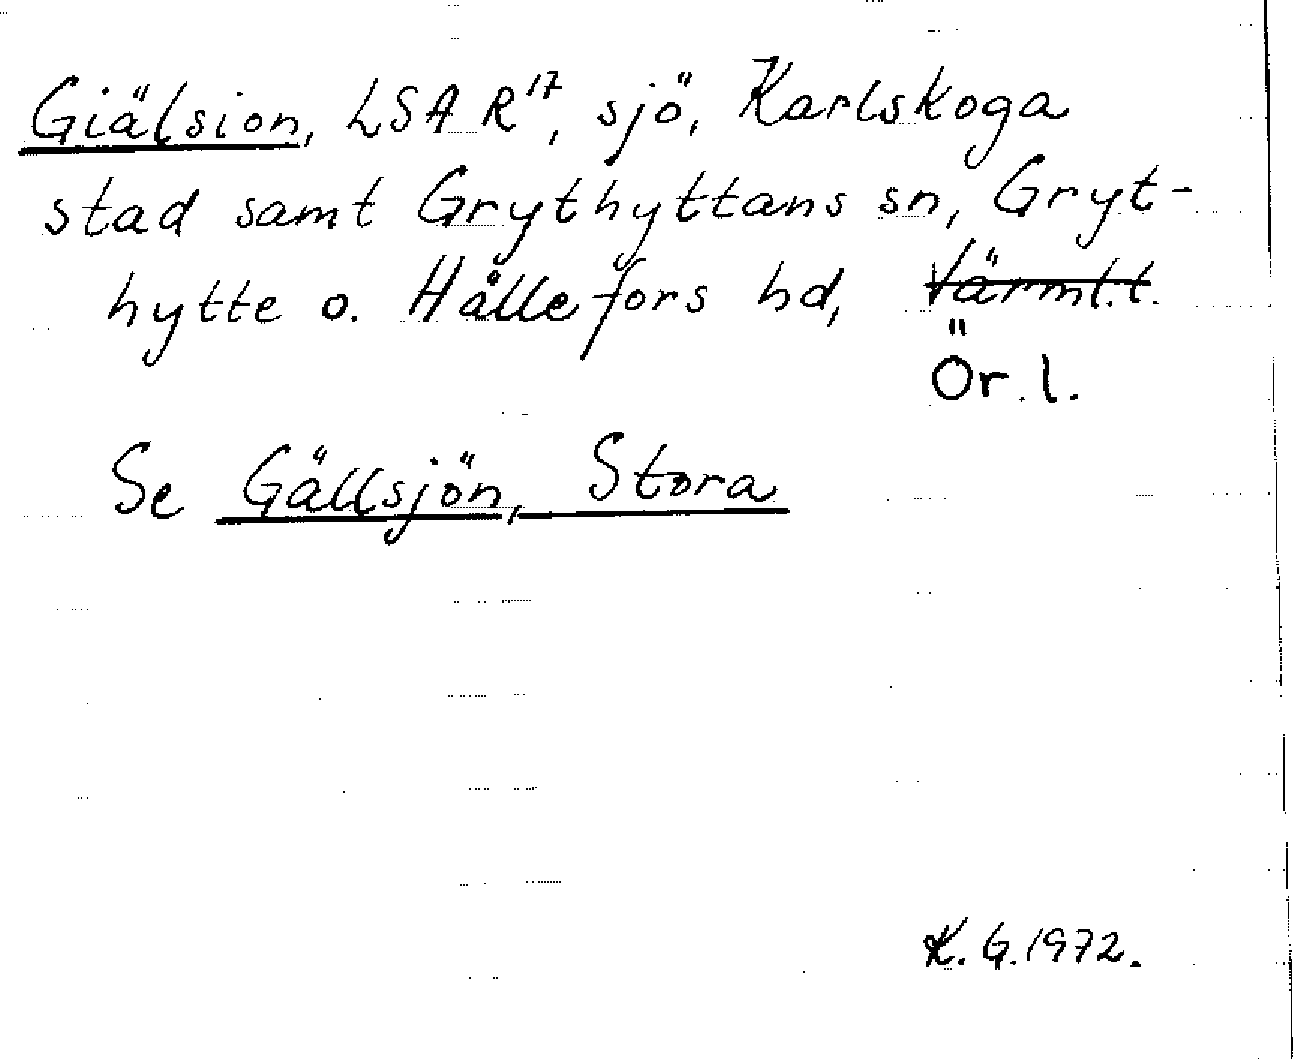 Giälsion, LSA R¹⁷, sjö, Karlskoga
stad samt Grythyttans sn, Gryt-
hytte o. Hällefors hd, Värml.l.
Ör. l.
Se Gällsjön, Stora
K. G. 1972.